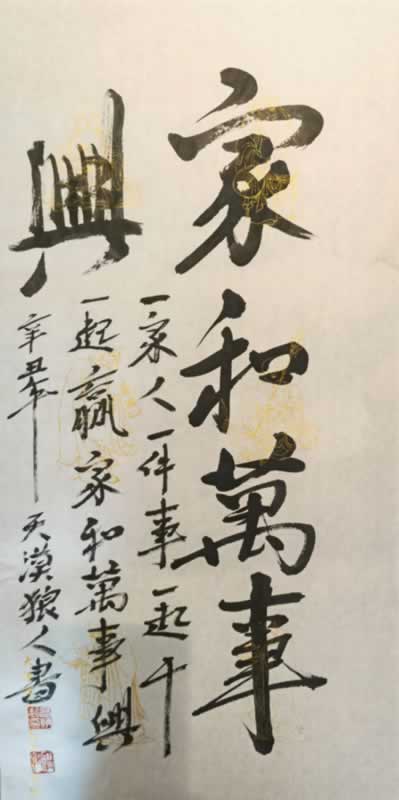 家和萬事
興
一家人一件事一起干
一起贏家和萬事興
辛丑年 天漠狼人書